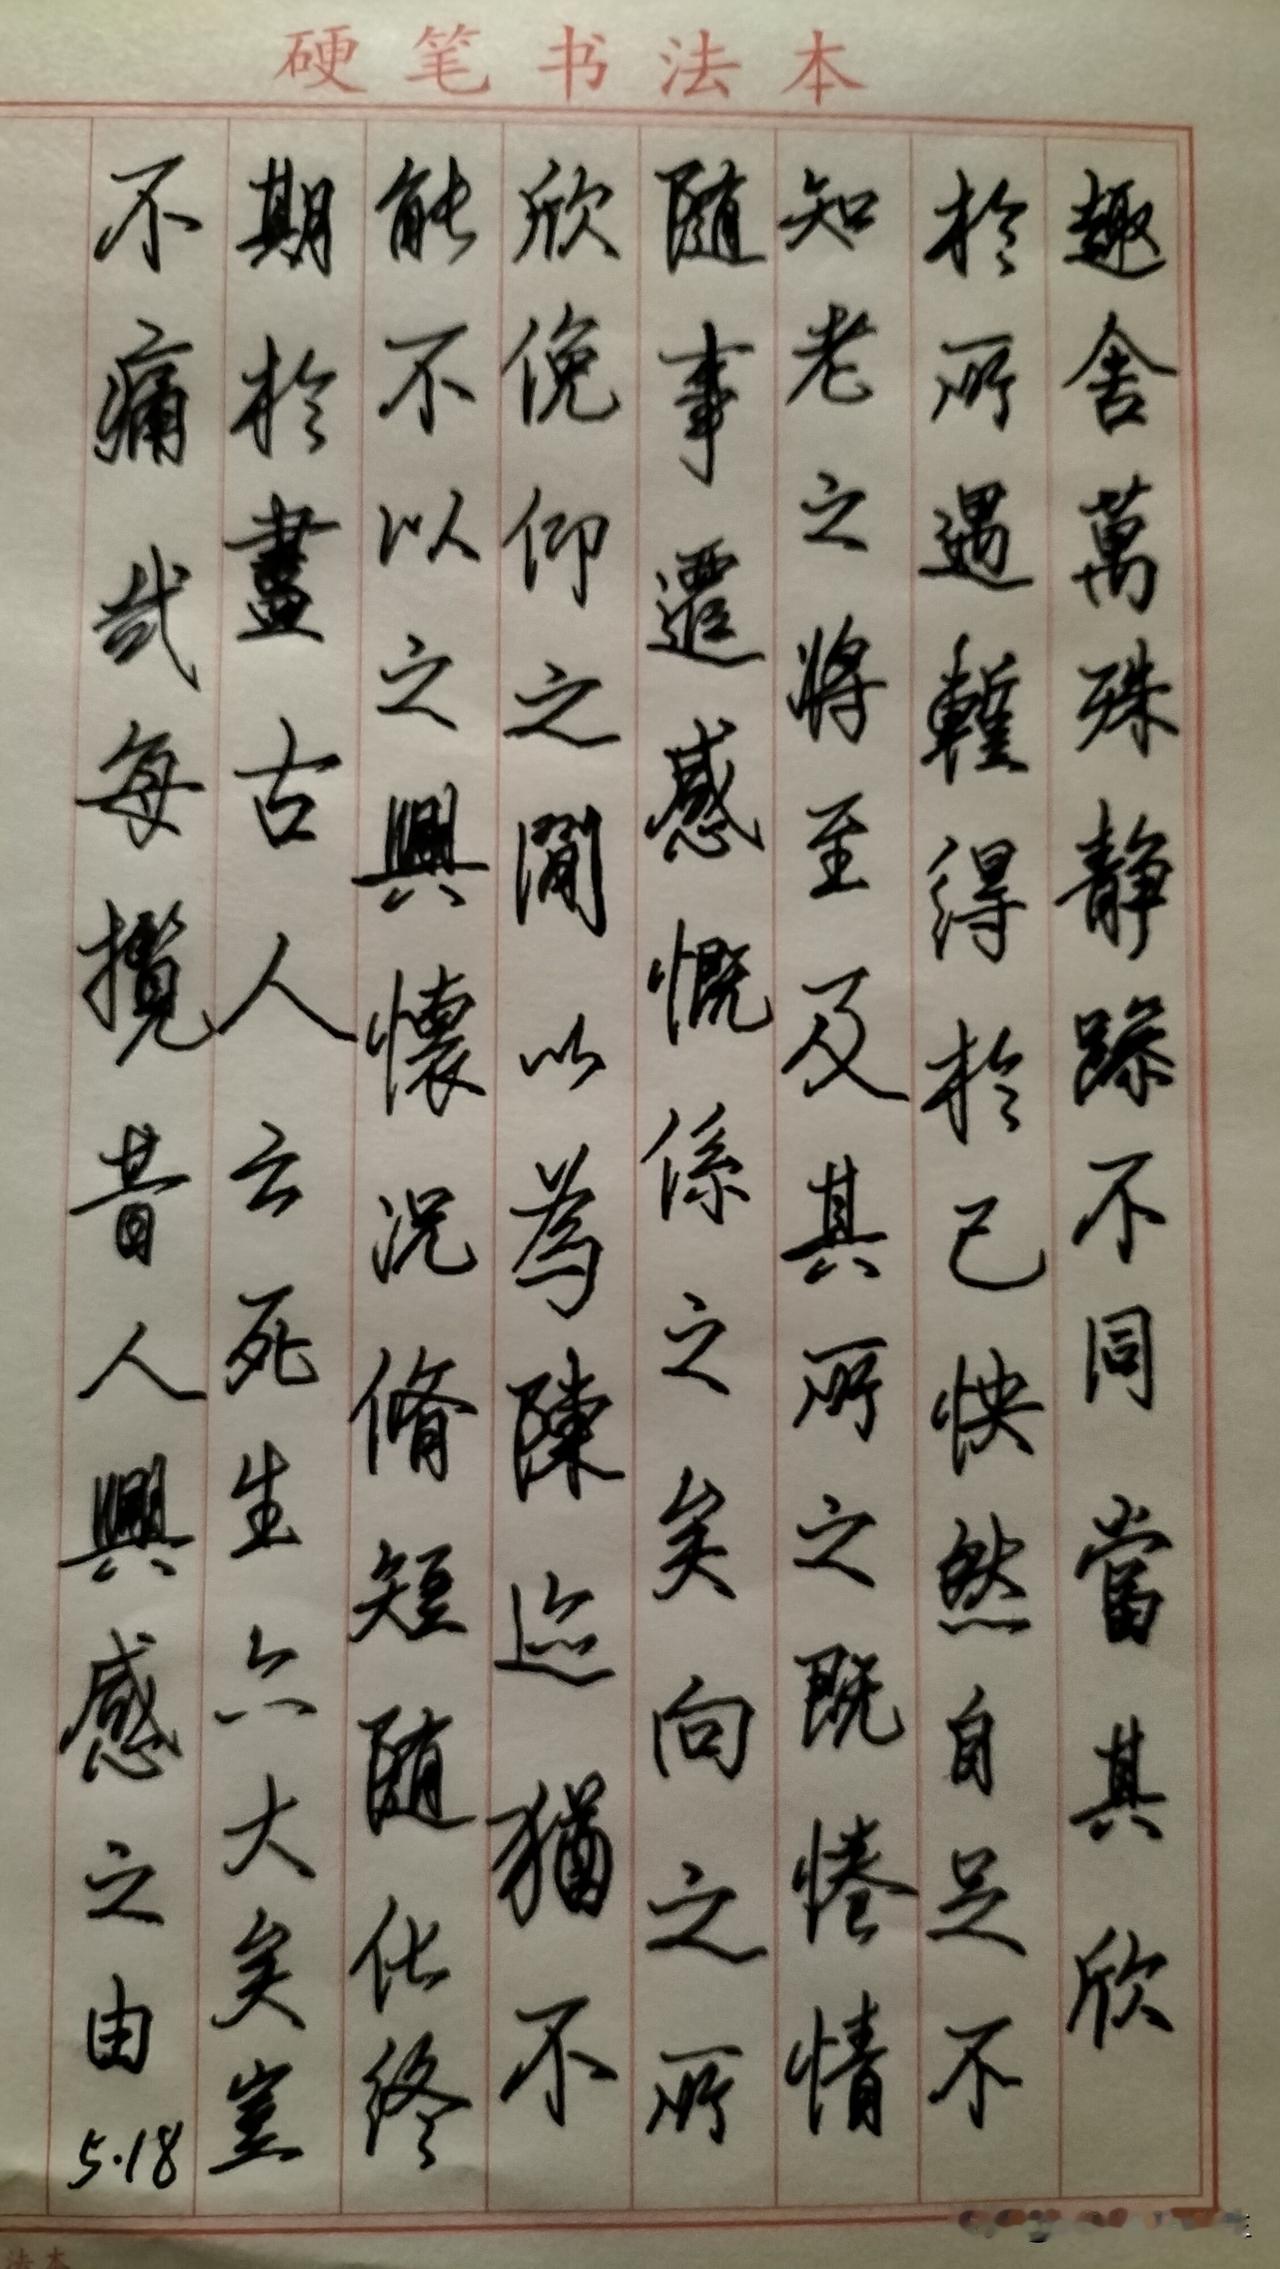 硬笔书法本
趣舍萬殊静躁不同當其欣
於所遇暫得於己快然自足不
知老之将至及其所之既惓情
随事遷感慨係之矣向之所
欣俛仰之閒以為陳迹猶不
能不以之興懷况脩短随化終
期於盡古人云死生亦大矣豈
不痛哉每攬昔人興感之由
5.18
法本